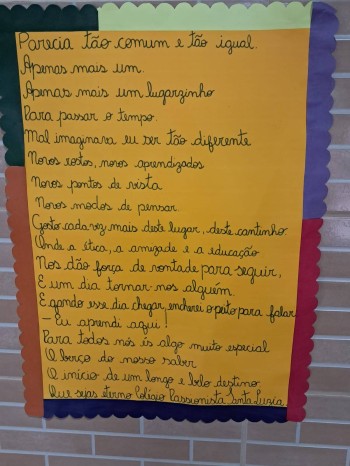 Parecia tão comum e tão igual.
Apenas mais um.
Apenas mais um lugarzinho
Para passar o tempo.
Mal imaginava eu ser tão diferente
Novos rostos, novos aprendizados
Novos pontos de vista
Novos modos de pensar
Gosto cada vez mais deste lugar, deste cantinho.
Onde a ética, a amizade e a educação
Nos dão força de vontade para seguir,
E um dia tornar-nos alguém.
E qando esse dia chegar, encherei o peito para falar
- Eu aprendi aqui!
Para todos nós is algo muito especial
O berço do nosso saber
O início de um longo e belo destino
Que sejas eterno Colégio Passionista Santa Luzia.